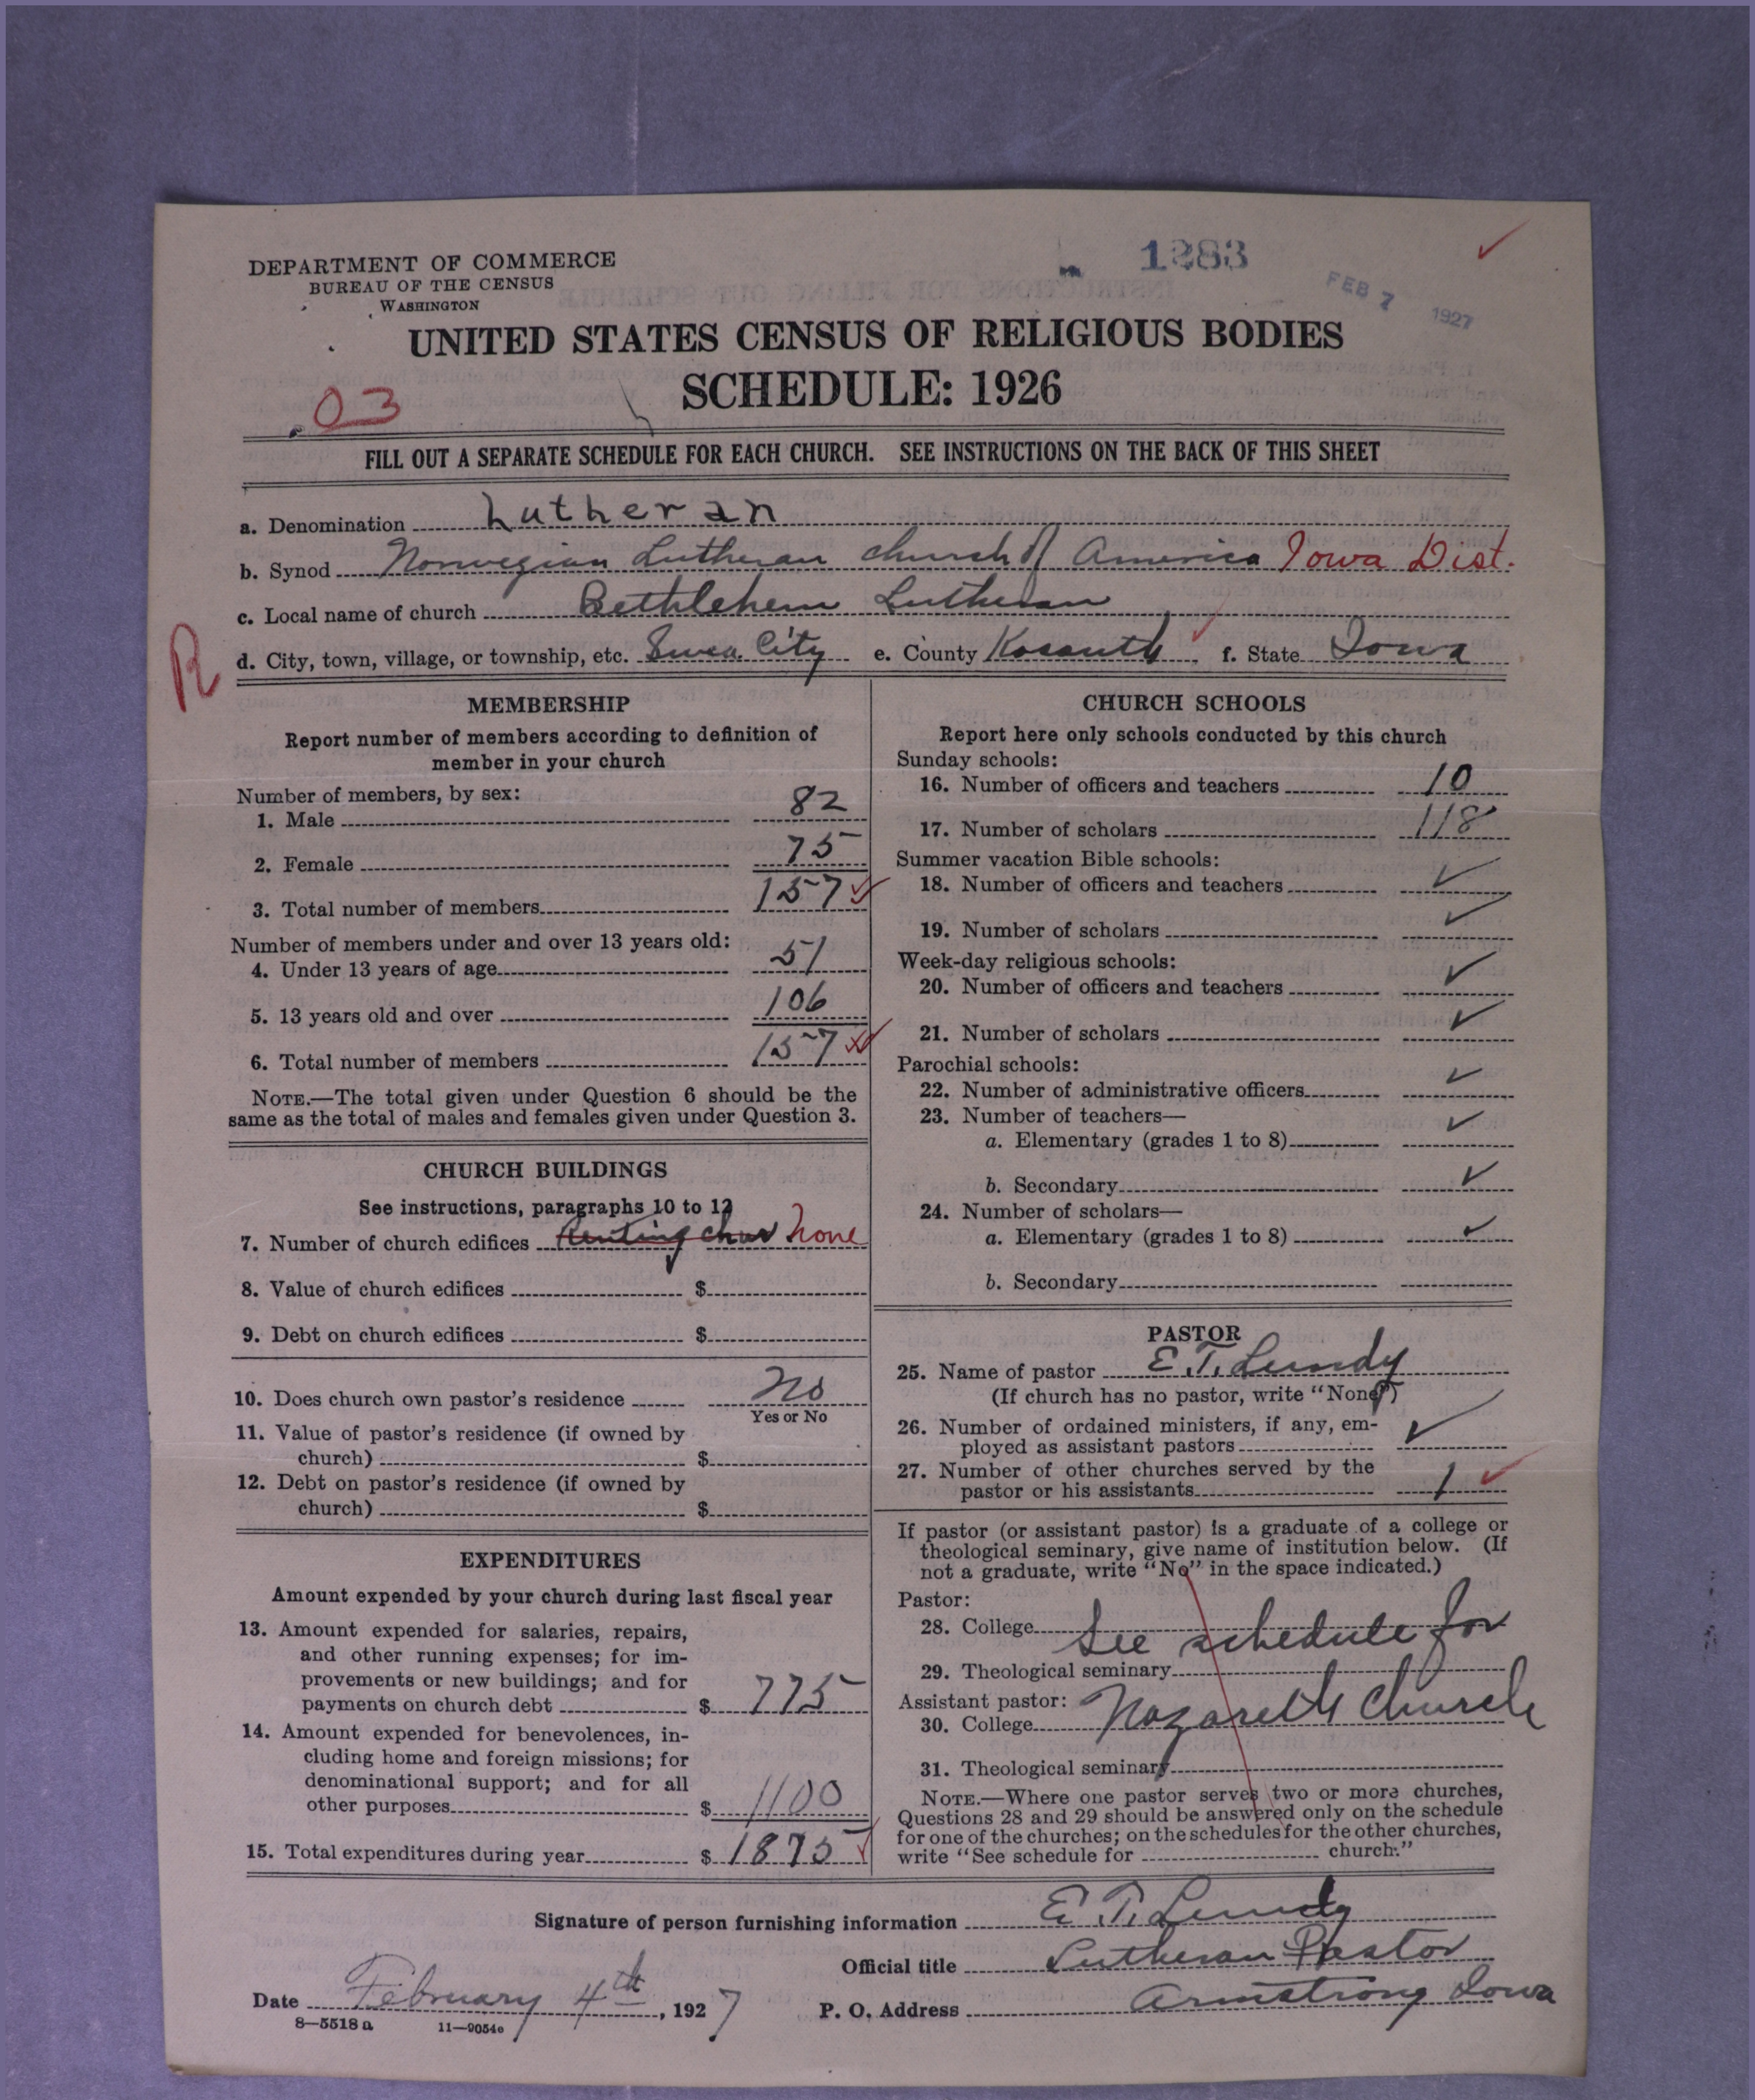 DEPARTMENT OF COMMERCE
BUREAU OF THE CENSUS
WASHINGTON
1283
FEB 7 1927
UNITED STATES CENSUS OF RELIGIOUS BODIES
SCHEDULE: 1926
03
FILL OUT A SEPARATE SCHEDULE FOR EACH CHURCH. SEE INSTRUCTIONS ON THE BACK OF THIS SHEET
a. Denomination Lutheran
b. Synod Norwegian Lutheran church of America Iowa Dist.
c. Local name of church Bethlehem Lutheran
R
d. City, town, village, or township, etc. Swea City e. County Kossuth f. State Iowa
MEMBERSHIP
Report number of members according to definition of
member in your church
Number of members, by sex:
1. Male 82
2. Female 75
3. Total number of members 157
Number of members under and over 13 years old:
4. Under 13 years of age 51
5. 13 years old and over 106
6. Total number of members 157
NOTE.—The total given under Question 6 should be the
same as the total of males and females given under Question 3.
CHURCH BUILDINGS
See instructions, paragraphs 10 to 12
7. Number of church edifices Renting chur None
8. Value of church edifices $
9. Debt on church edifices $
10. Does church own pastor's residence No
Yes or No
11. Value of pastor's residence (if owned by
church) $
12. Debt on pastor's residence (if owned by
church) $
EXPENDITURES
Amount expended by your church during last fiscal year
13. Amount expended for salaries, repairs,
and other running expenses; for im-
provements or new buildings; and for
payments on church debt $ 775
14. Amount expended for benevolences, in-
cluding home and foreign missions; for
denominational support; and for all
other purposes $ 1100
15. Total expenditures during year $ 1875
CHURCH SCHOOLS
Report here only schools conducted by this church
Sunday schools:
16. Number of officers and teachers 10
17. Number of scholars 118
Summer vacation Bible schools:
18. Number of officers and teachers ✓
19. Number of scholars ✓
Week-day religious schools:
20. Number of officers and teachers ✓
21. Number of scholars ✓
Parochial schools:
22. Number of administrative officers ✓
23. Number of teachers—
a. Elementary (grades 1 to 8) ✓
b. Secondary ✓
24. Number of scholars—
a. Elementary (grades 1 to 8) ✓
b. Secondary
PASTOR
25. Name of pastor E. T. Lundy
(If church has no pastor, write "None")
26. Number of ordained ministers, if any, em-
ployed as assistant pastors ✓
27. Number of other churches served by the
pastor or his assistants 1 ✓
If pastor (or assistant pastor) is a graduate of a college or
theological seminary, give name of institution below. (If
not a graduate, write "No" in the space indicated.)
Pastor:
28. College See schedule for
29. Theological seminary
Assistant pastor:
30. College Nazareth Church
31. Theological seminary
NOTE.—Where one pastor serves two or more churches,
Questions 28 and 29 should be answered only on the schedule
for one of the churches; on the schedules for the other churches,
write "See schedule for church."
Signature of person furnishing information E. T. Lundy
Official title Lutheran Pastor
Date February 4th, 1927 P. O. Address Armstrong Iowa
8—5518 a 11—9054e